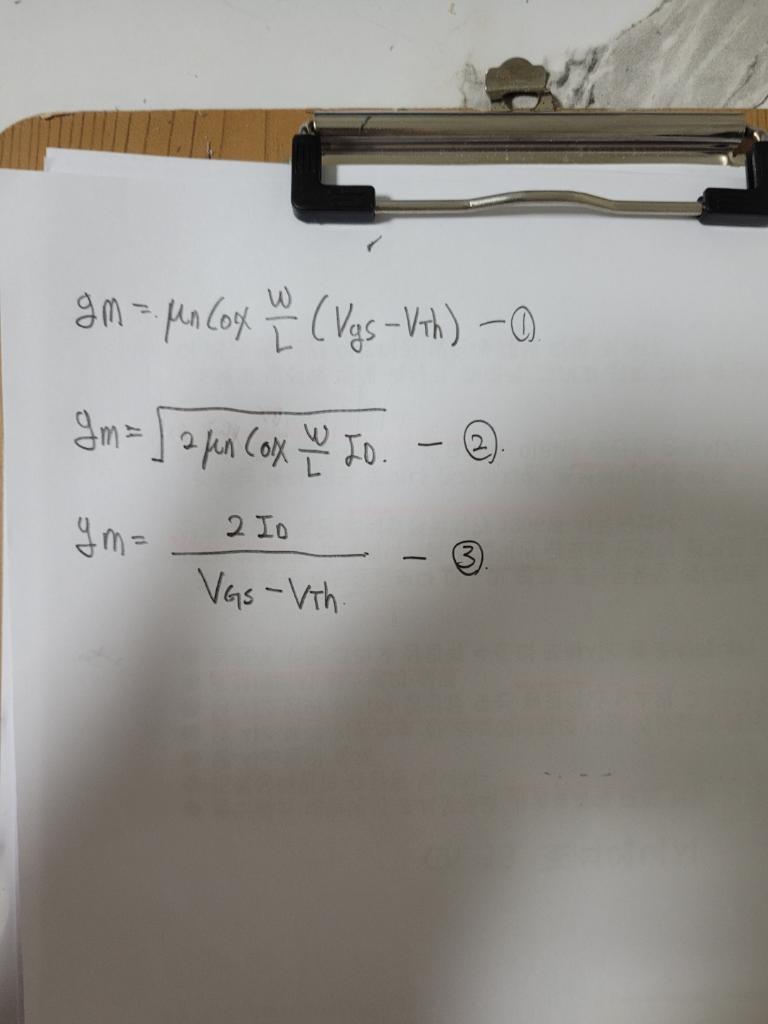 gm = μn Cox W/L (Vgs - VTh) - ①.
gm = √(2 μn Cox W/L ID.) - ②.
gm = 2 ID / (VGS - VTh.) - ③.